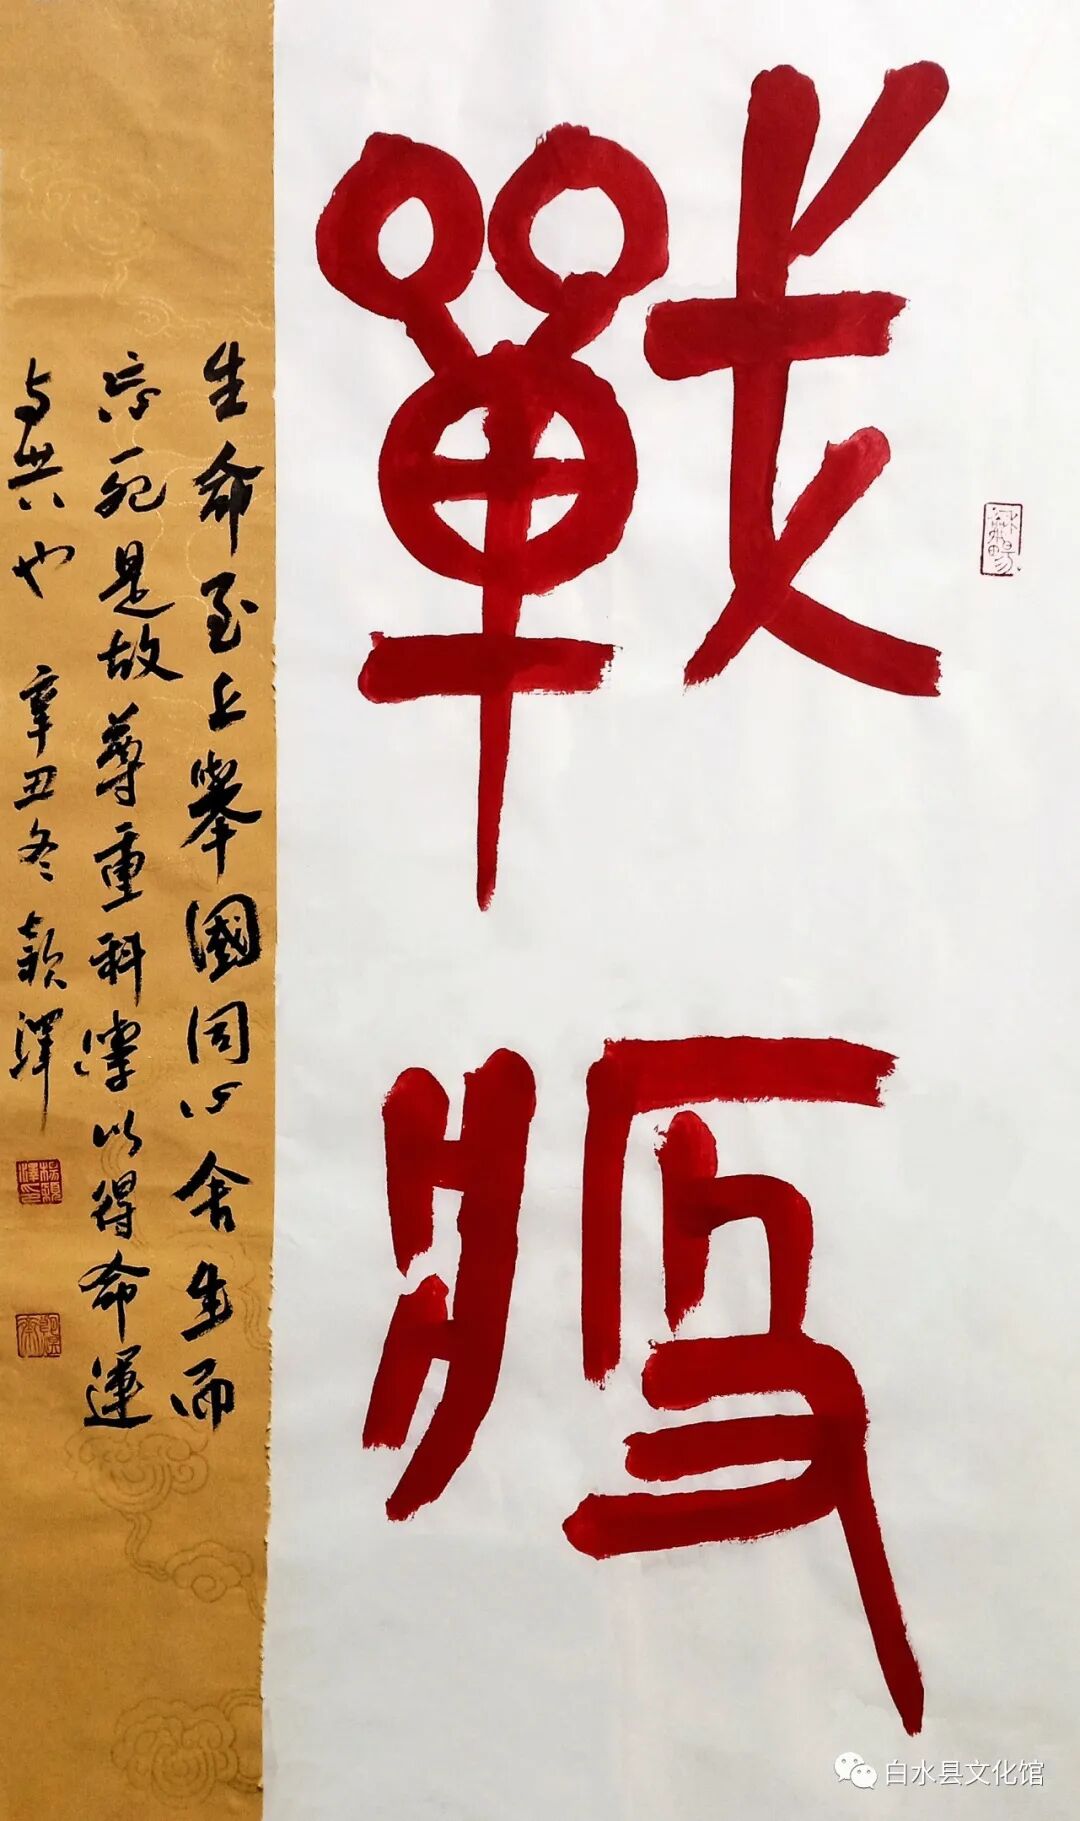 戰疫
生命至上舉國同心舍生而
忘死是故尊重科學以得命運
与共也 辛丑冬 穎澤
白水县文化馆